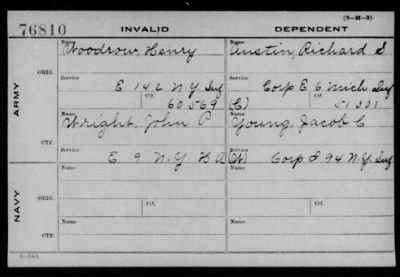 (3-M-3)
76810 INVALID DEPENDENT
ARMY
ORIG.
Name Woodrow, Henry
Name Austin, Richard S
Service E 142 N.Y. Inf
Service Corp E 6 Mich Inf
Ctf. 60569
(C) Ctf. 51331
CTF.
Name Wright, John P
Name Young, Jacob C
Service E 9 N.Y. H A
(W) Service Corp I 94 N.Y. Inf
NAVY
ORIG.
Name
Name
Service
Service
Ctf.
Ctf.
CTF.
Name
Name